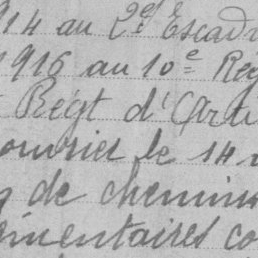 914 au 2e Escad
1916 au 10e Reg
Régt d'Arti
ouvrier le 14
de chemins
émentaires co